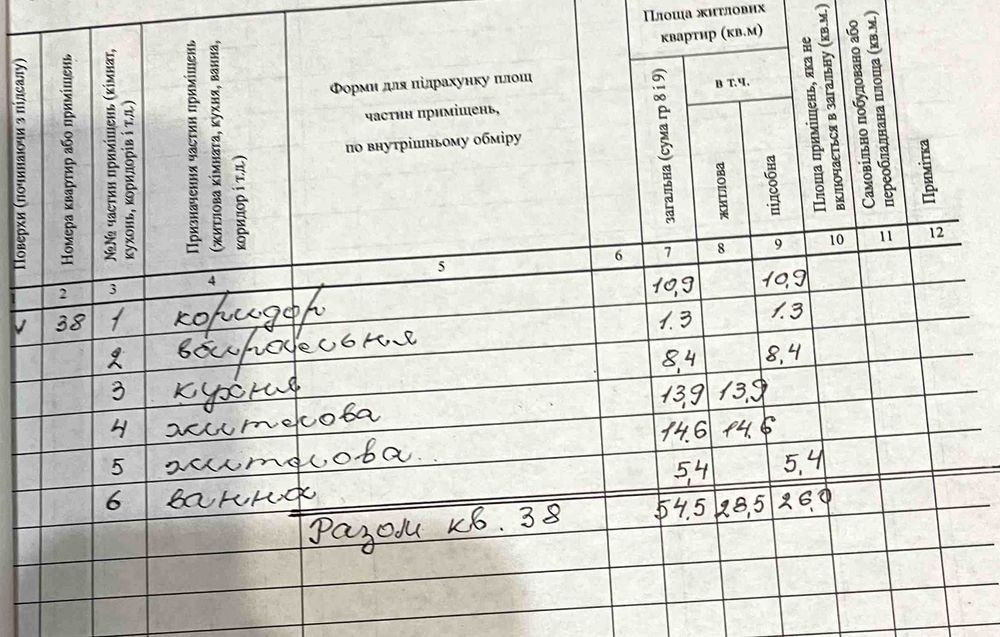 Поверхи (починаючи з підсалу)
Номера квартир або приміщень
№№ частин приміщень (кімнат,
кухонь, коридорів і т.д.)
Призначення частин приміщень
(житлова кімната, кухня, ванна,
коридор і т.д.)
Форми для підрахунку площ
частин приміщень,
по внутрішньому обміру
Площа житлових
квартир (кв.м)
загальна (сума гр 8 і 9)
в т.ч.
житлова
підсобна
Площа приміщень, яка не
включається в загальну (кв.м.)
Самовільно побудовано або
переобладнана площа (кв.м.)
Примітка
1 2 3 4 5 6 7 8 9 10 11 12
V 38 1 коридор 10,9 10,9
2 вбиральня 1.3 1.3
3 кухня 8,4 8,4
4 житлова 13,9 13,9
5 житлова 14.6 14.6
6 ванна 5,4 5,4
Разом кв. 38 54.5 28,5 26.0